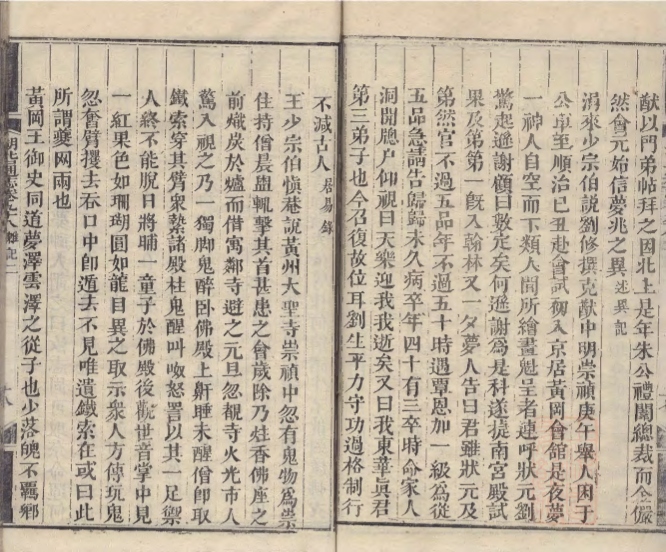 猷以門弟帖拜之因北上是年朱公禮闈總裁而合儼
然會元始信夢兆之異述異記
涓來少宗伯說劉修撰克猷中明崇禎庚午舉人困于
公車至順治己丑赴會試初入京居黃岡會館是夜夢
一神人自空而下類人間所繪畫魁星者連呼狀元劉
驚起遜謝顧曰數定矣何遜謝為是科遂捷南宮殿試
果及第第一既入翰林又一夕夢人告曰君雖狀元及
第然官不過五品年不過五十時遇覃恩加一級為從
五品急請告歸歸未久病卒年四十有三卒時命家人
洞開牕戶仰視曰天樂迎我我逝矣又曰我東華眞君
第三弟子也今召復故位耳劉生平力守功過格制行
不減古人居易錄
王少宗伯慎菴說黃州大聖寺崇禎中忽有鬼物為祟
住持僧晨盥輒擊其首甚患之會歲除乃炷香佛座之
前熾炭於爐而借寓鄰寺避之元旦忽覩寺火光市人
驚入視之乃一獨脚鬼醉卧佛殿上鼾睡未醒僧卽取
鐵索穿其臂衆縶諸殿柱鬼醒叫呶怒詈以其一足禦
人終不能脫日將晡一童子於佛殿後觀世音掌中見
一紅果色如珊瑚圓如龍目異之取示衆人方傳玩鬼
忽奮臂攫去吞口中卽遁去不見唯遺鐵索在或曰此
所謂夔罔兩也
黃岡王御史同道夢澤雲澤之從子也少落魄不羈鄉
雜記二